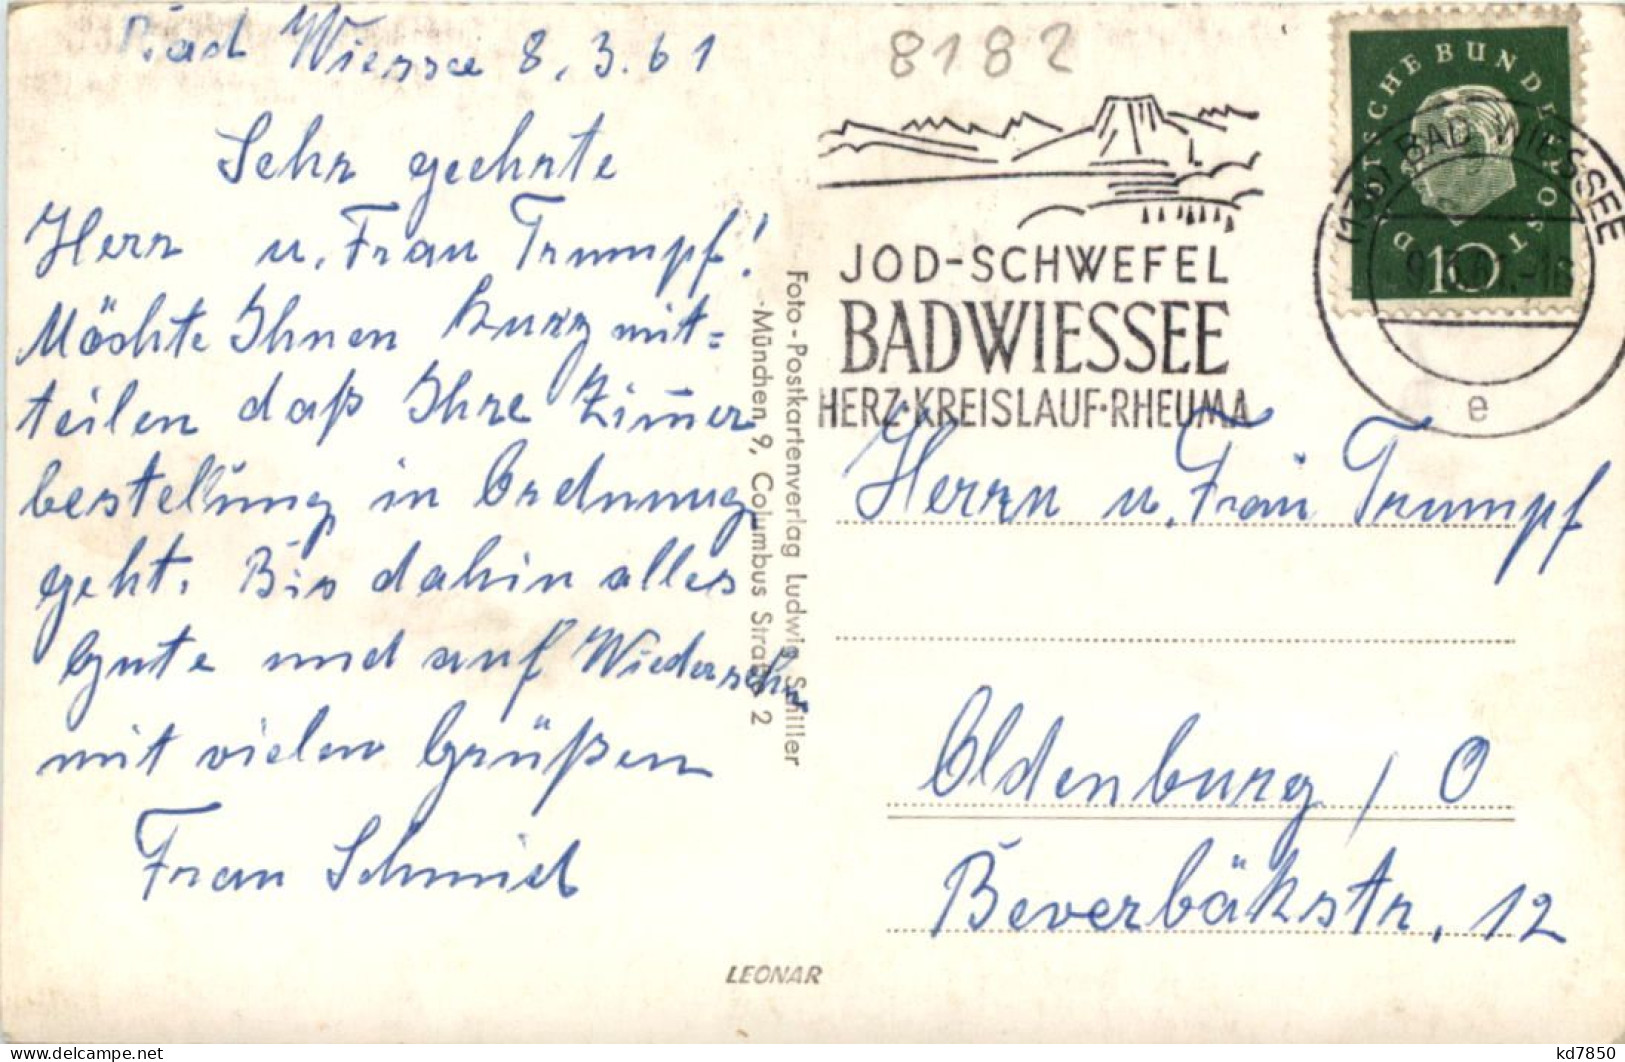 Bad Wiessee 8.3.61
Sehr geehrte
Herr u. Frau Trumpf!
Möchte Ihnen kurz mit=
teilen daß Ihre Zimmer
bestellung in Ordnung
geht. Bis dahin alles
Gute und auf Wiedersehn
mit vielen Grüßen
Frau Schmid
Foto-Postkartenverlag Ludwig Schiller
München 9, Columbus Straße 2
LEONAR
8182
JOD-SCHWEFEL
BAD WIESSEE
HERZ·KREISLAUF·RHEUMA
DEUTSCHE BUNDESPOST
10
(13b) BAD WIESSEE
9.3.61.-18
e
Herrn u. Frau Trumpf
Oldenburg / O
Beverbäkstr. 12
kd7850